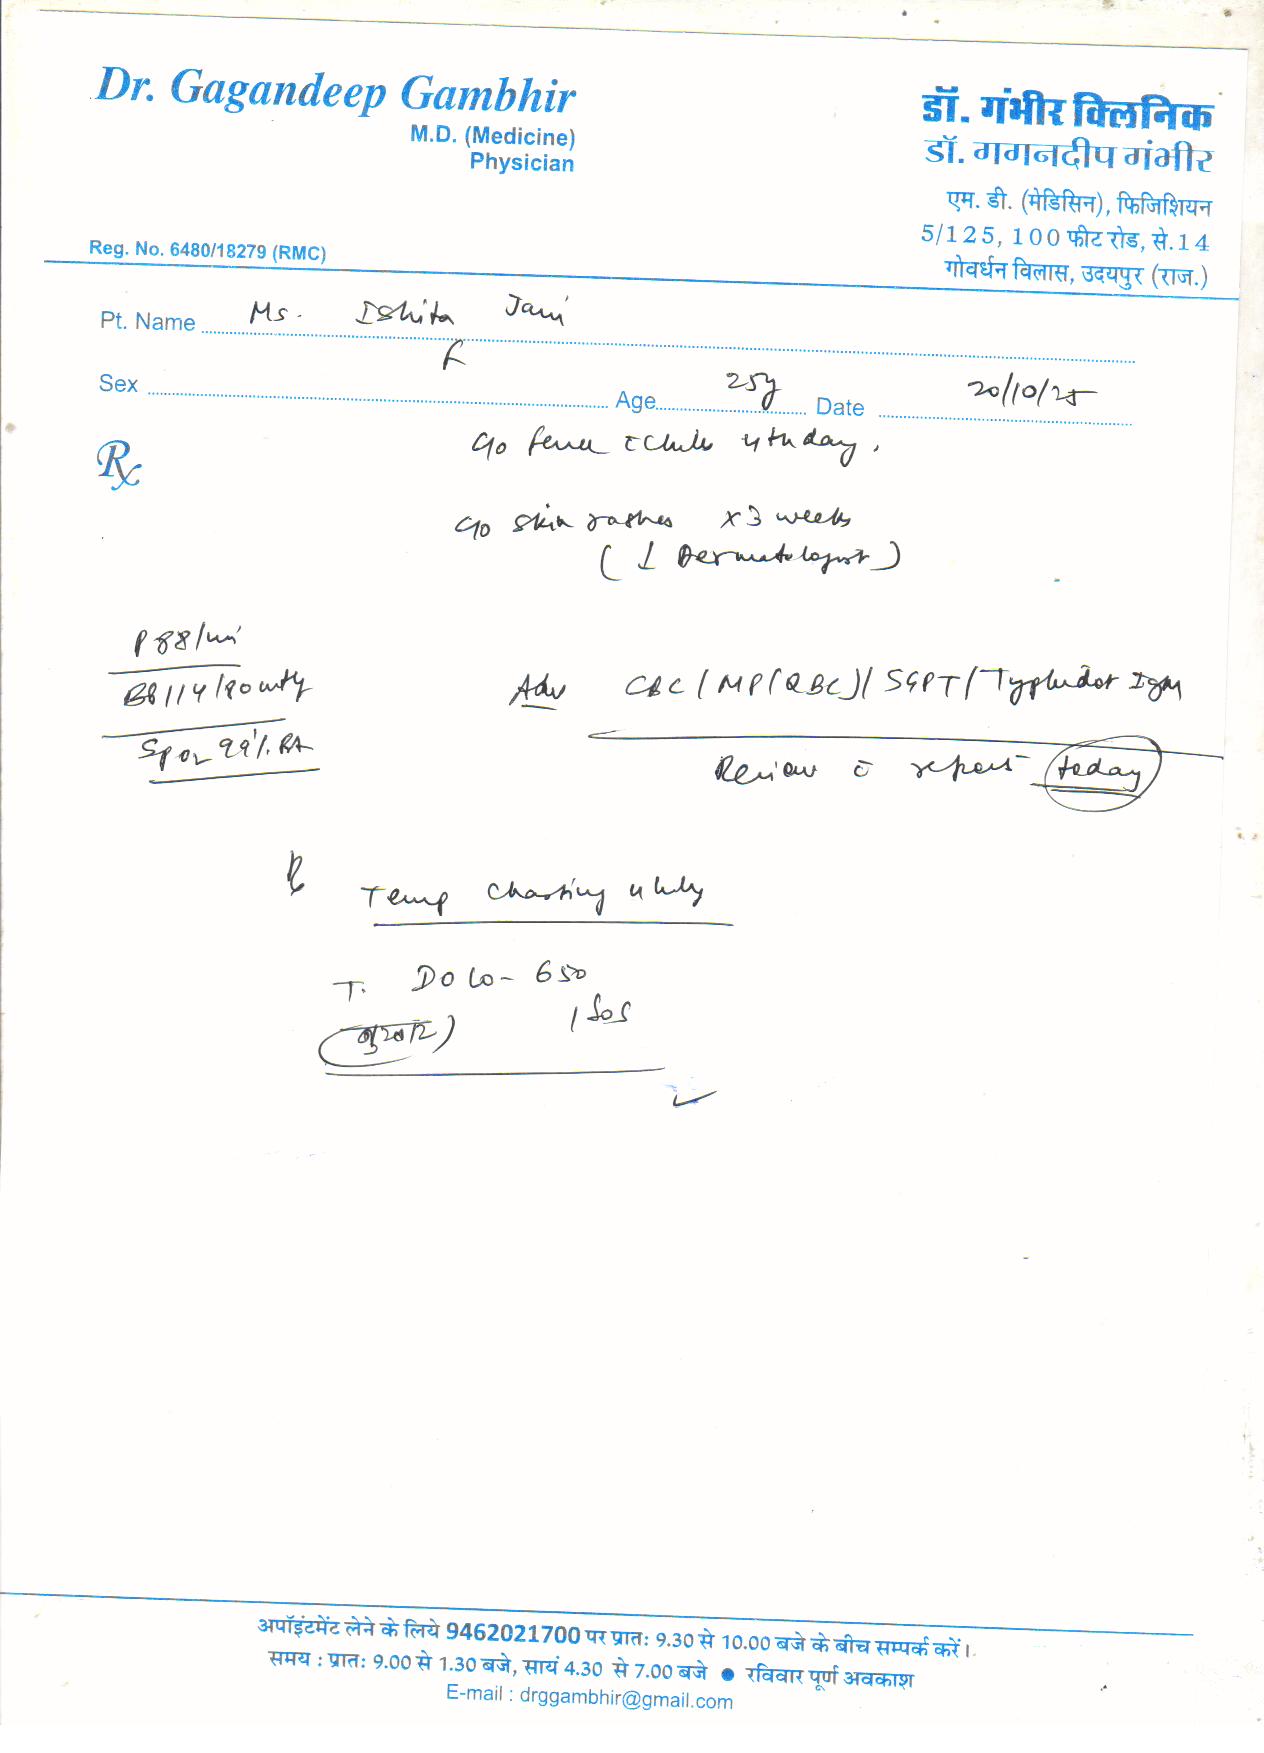 Dr. Gagandeep Gambhir
M.D. (Medicine)
Physician
Reg. No. 6480/18279 (RMC)
डॉ. गंभीर क्लिनिक
डॉ. गगनदीप गंभीर
एम. डी. (मेडिसिन), फिजिशियन
5/125, 100 फीट रोड, से.14
गोवर्धन विलास, उदयपुर (राज.)
Pt. Name Ms. Ishita Jani
Sex F Age 25y Date 20/10/25
Rx
c/o fever c̄ chills 4th day.
c/o skin rashes x 3 weeks
( ↓ Dermatologist )
P 88/mi
BP 114/80 mmHg
SpO2 99% RA
Adv CBC / MP(QBC) / SGPT / Typhidot IgM
Review c̄ report today
Rx
Temp charting 4 hrly
T. DOLO-650
1 SOS
(बुखार)
अपॉइंटमेंट लेने के लिये 9462021700 पर प्रात: 9.30 से 10.00 बजे के बीच सम्पर्क करें।
समय : प्रात: 9.00 से 1.30 बजे, सायं 4.30 से 7.00 बजे ● रविवार पूर्ण अवकाश
E-mail : drggambhir@gmail.com